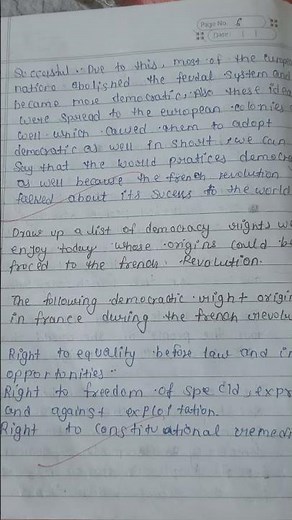 Page No. 8
Date:
Successful. Due to this, most of the europe
nations abolished the feudal system and
became more democratic. Also these idea
were spread to the european colonies a
well which caused them to adopt
democratic as well In short, we can
Say that the world pratices democra
as well because the french revolution
about its sucess to the world
Draw up a list of democracy rights we
enjoy today whose origins could be
troced to the french. Revolution.
The following democrastic right origin
in france during the french revolu
Right to equality before law and in
opportunities:-
Right to freedom of spe cld, expr
and against exploitation.
Right to constitutional remedi